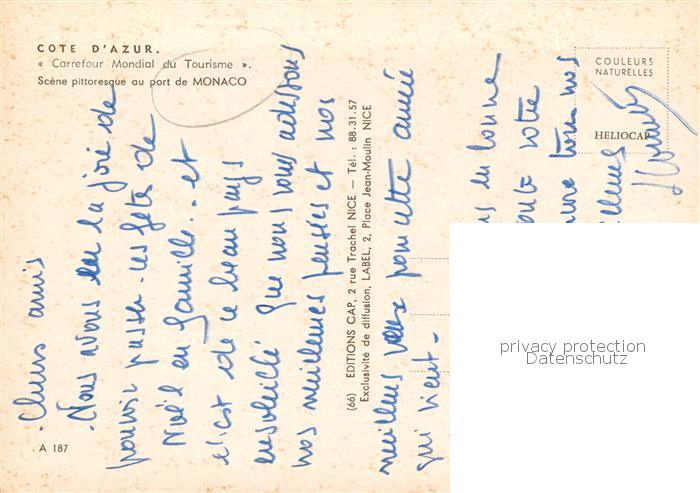 COTE D'AZUR.
« Carrefour Mondial du Tourisme ».
Scène pittoresque au port de MONACO
COULEURS
NATURELLES
HELIOCAP
(66) EDITIONS CAP, 2 rue Trachel NICE — Tél. : 88.31.57
Exclusivité de diffusion, LABEL, 2, Place Jean-Moulin NICE
A 187
Chers amis
Nous avons eu la joie de
pouvoir passer ces fêtes de
Noël en famille.. et
c'est de ce beau pays
ensoleillé que nous vous adressons
nos meilleures pensées et nos
meilleurs vœux pour cette année
qui vient -
en bonne
votre
tous nos
privacy protection
Datenschutz